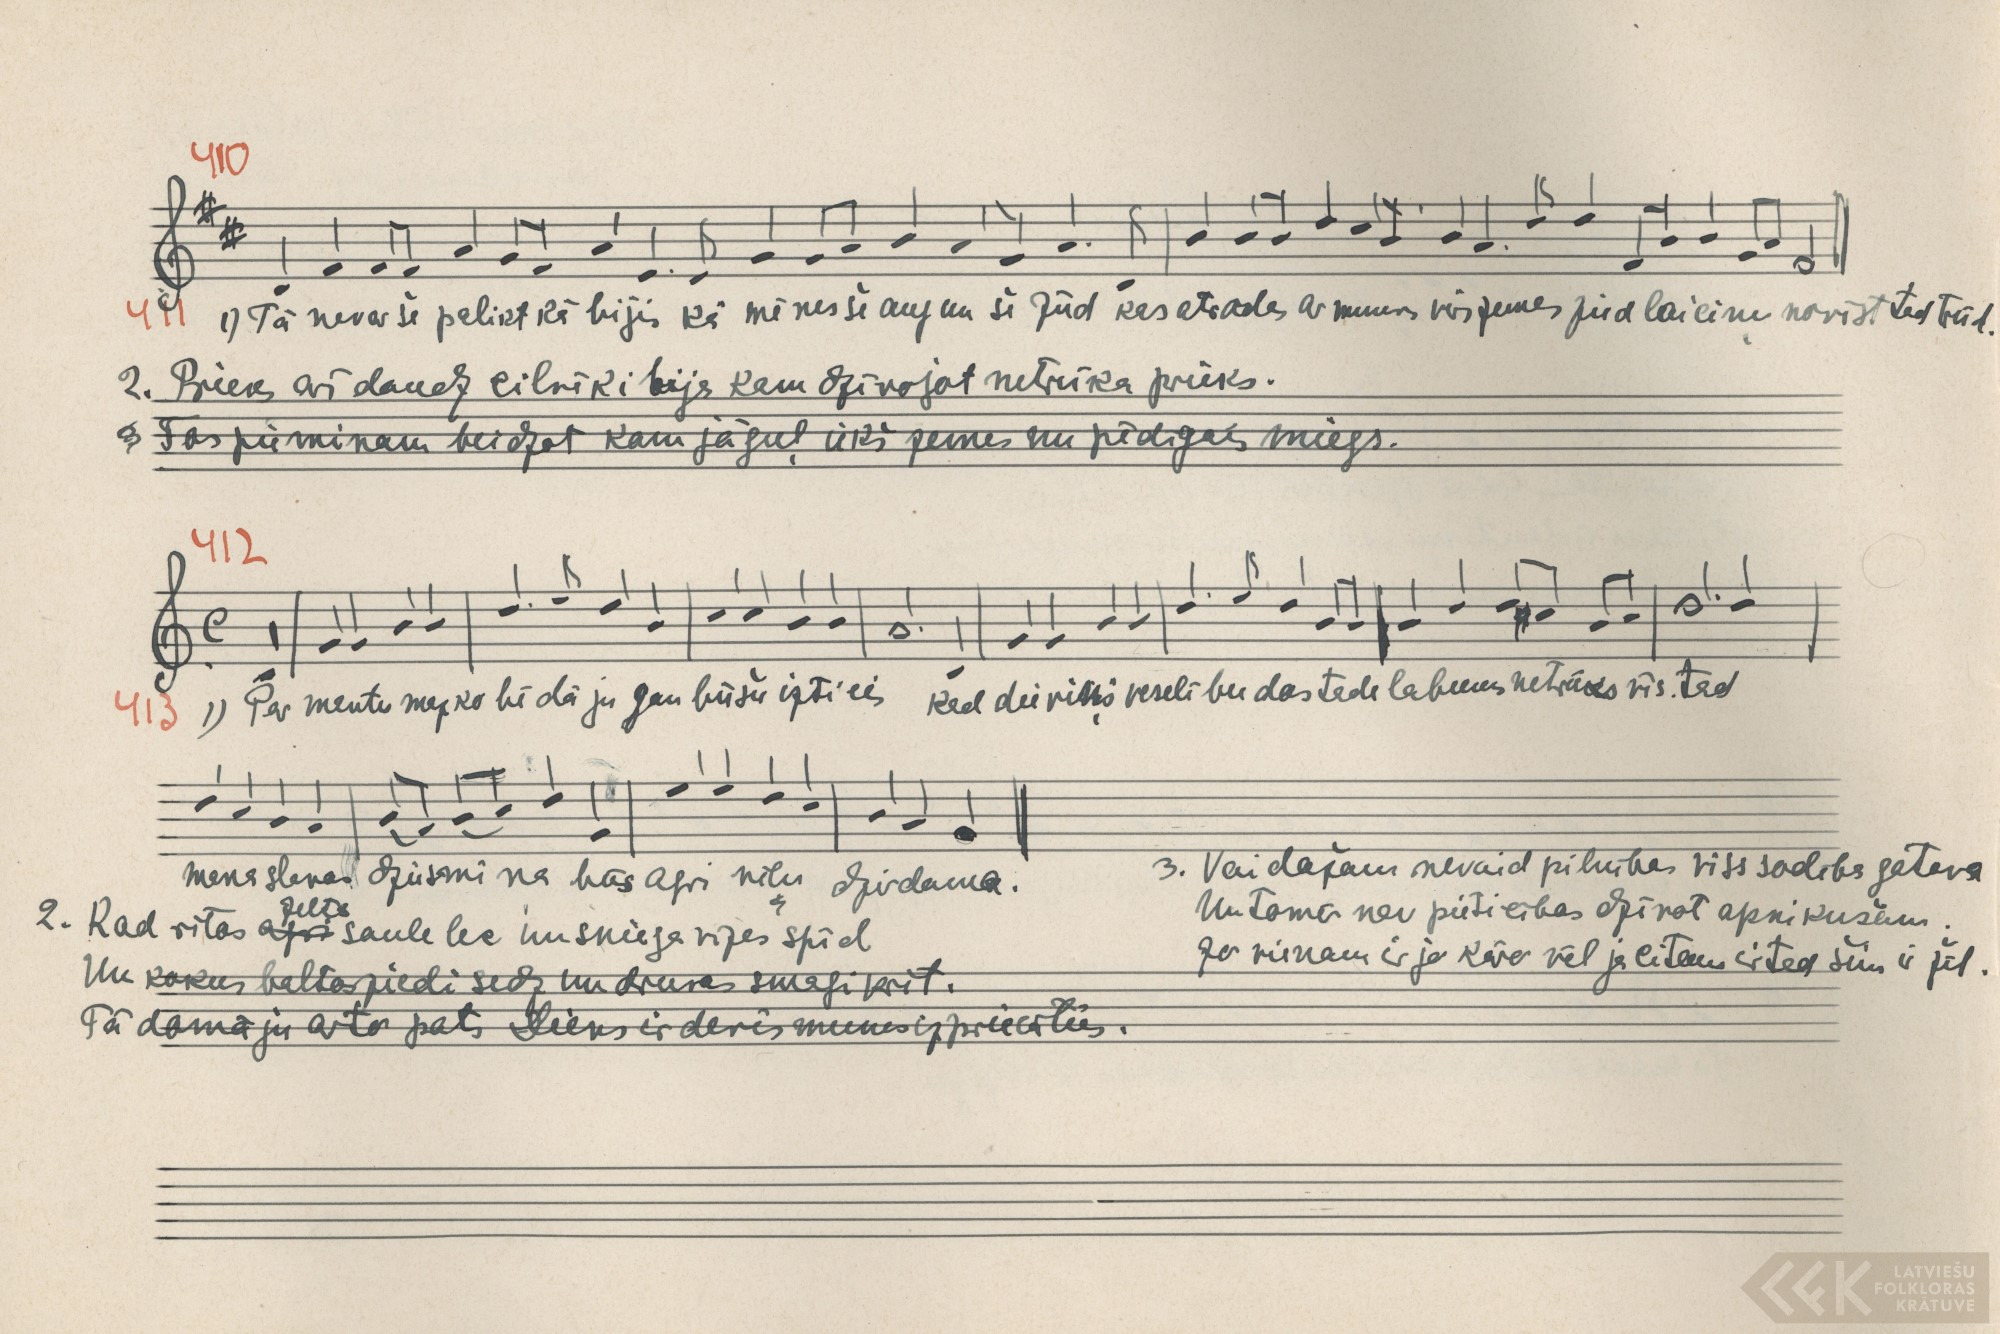 410
411 1) Tā nevar še palikt kā bijis kā mēnesši aug un še zūd kas atrodas ar mums virs zemes pēd laiciņu novīst tad trūd.
2. Prieks arī daudz cilvēki bija kam dzīvojot netrūka prieks.
Tos pieminam beidzot kam jāguļ iekš zemes nu pēdigais miegs.
412
413 1) Par mantu mazko bēdāju gan būšu izticis kad dievišķo veselību dos tad labums netrūks vis. tad
mana slavas dziesmiņa būs agri vēlu dzirdama.
2. Kad rītos zelta saule lec un sniega vizes spīd
Un kokus baltos ziedi sedz un druvas smagi krīt.
Tā domāju ar to pats Dievs ir devis mums iz priecāties.
3. Vai dažam nevaid pilnības viss sadība gatava
Un tomēr nav pieticības dzīvot apnikušam.
Jo vienam ir jo kāro vēl ja citam ir tad šim ir žēl.
LATVIEŠU
FOLKLORAS
KRĀTUVE